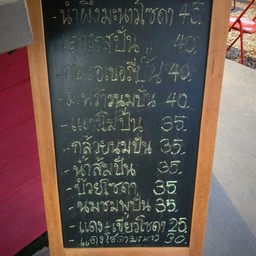 - น้ำผึ้งมะนาวโซดา 45.
ปั่น 40.
ปั่น 40.
- มะพร้าวนมปั่น 40.
- แตงโมปั่น 35.
- กล้วยนมปั่น 35.
- น้ำส้มปั่น 35.
- บ๊วยโซดา 35
- นมชมพูปั่น 35.
- แดง+เขียวโซดา 25.
- แดงโซดามะนาว 30.